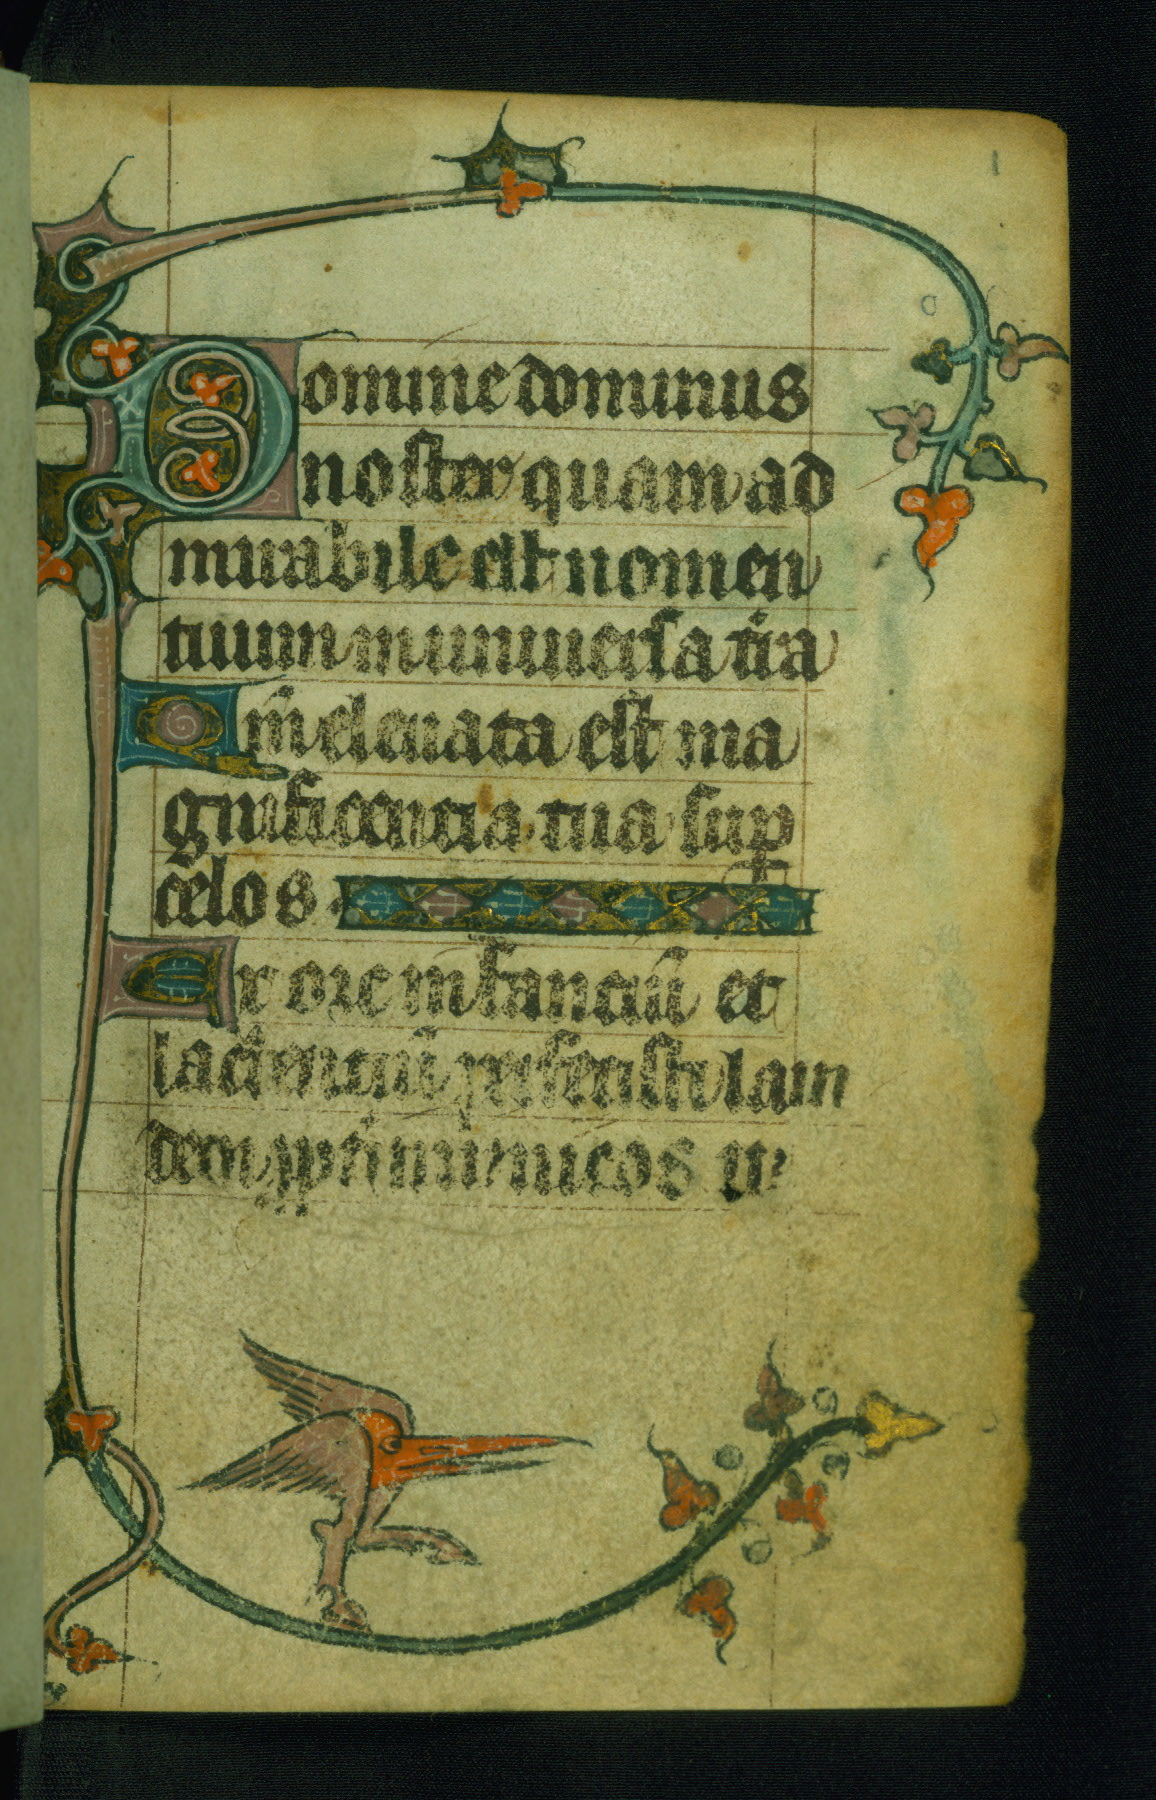 Domine dominus
noster quam ad
mirabile est nomen
tuum in universa t̄ra
Qm̄ elevata est ma
gnificencia tua sup̱
celos
Ex ore infanciū et
lactenciū perfecisti laud
dem ꝓpt̄ inimicos